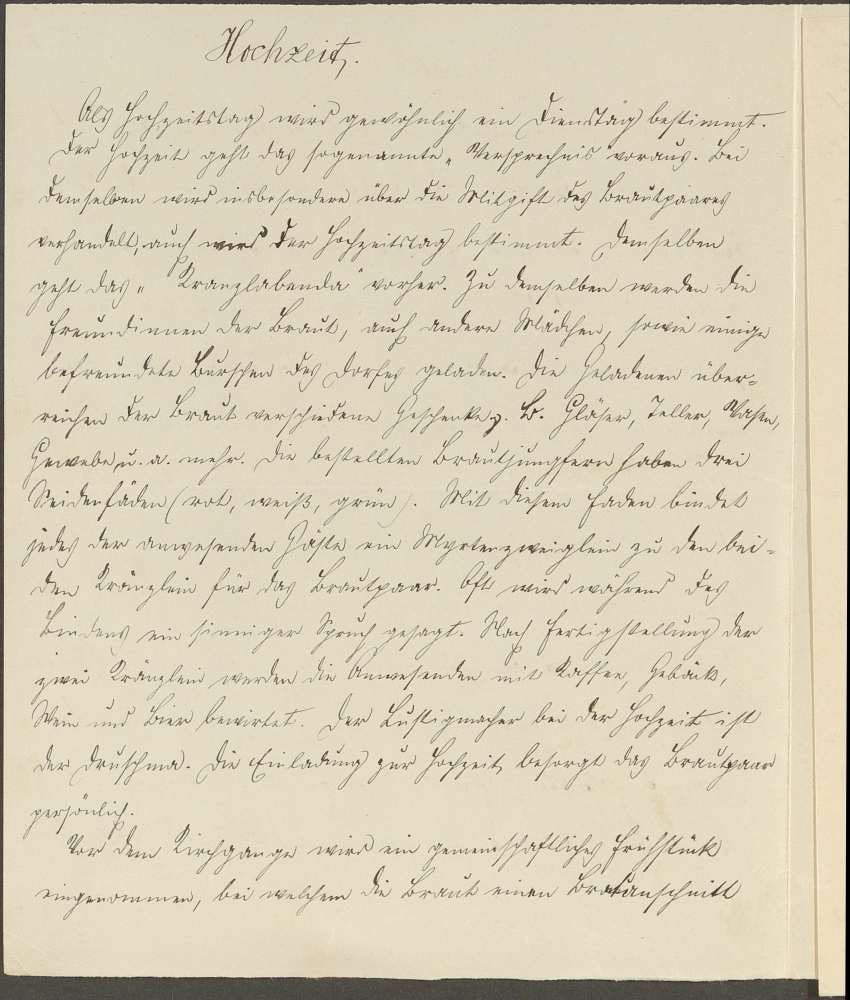 Hochzeit.
Als Hochzeitstag wird gewöhnlich ein Dienstag bestimmt.
Der Hochzeit geht das sogenannte „Versprechnis" voraus. Bei
demselben wird insbesondere über die Mitgift des Brautpaares
verhandelt, auch wird der Hochzeitstag bestimmt. Demselben
geht das „Kranzlabenda" vorher. Zu demselben werden die
Freundinnen der Braut, auch andere Mädchen, sowie einige
befreundete Burschen des Dorfes geladen. Die Geladenen über-
reichen der Braut verschiedene Geschenke z. B. Gläser, Teller, Vasen,
Gewebe u. a. mehr. Die bestellten Brautjungfern haben drei
Seidenfäden (rot, weiß, grün). Mit diesem Faden bindet
jedes der anwesenden Gäste ein Myrtenzweiglein zu den bei-
den Kränzlein für das Brautpaar. Oft wird während des
Bindens ein sinniger Spruch gesagt. Nach Fertigstellung der
zwei Kränzlein werden die Anwesenden mit Kaffee, Gebäck,
Wein und Bier bewirtet. Der Lustigmacher bei der Hochzeit ist
der Druschma. Die Einladung zur Hochzeit besorgt das Brautpaar
persönlich.
Vor dem Kirchgange wird ein gemeinschaftliches Frühstück
eingenommen, bei welchem die Braut einen Brotanschnitt